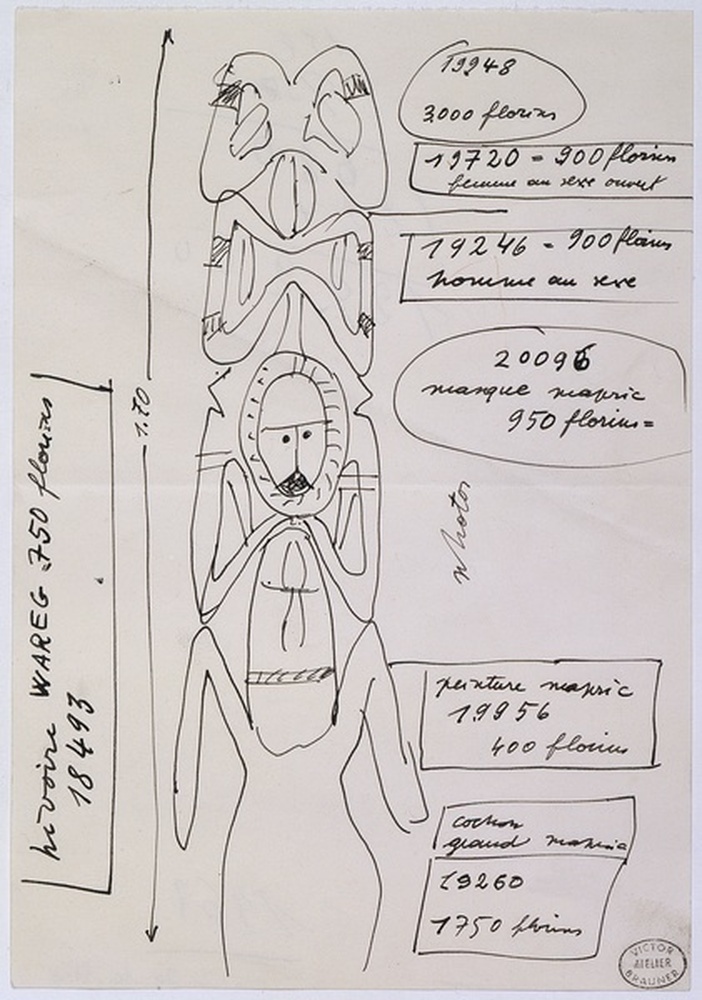 19248
3000 florins
19720 = 900 florins
femme au sexe ouvert
19246 = 900 florins
homme au sexe
20096
masque mapric
950 florins =
1.70
hivoire WAREG 750 florins
18493
photos
peinture mapric
19956
400 florins
cochon
grand mapric
19260
1750 florins
VICTOR
ATELIER
BRAUNER